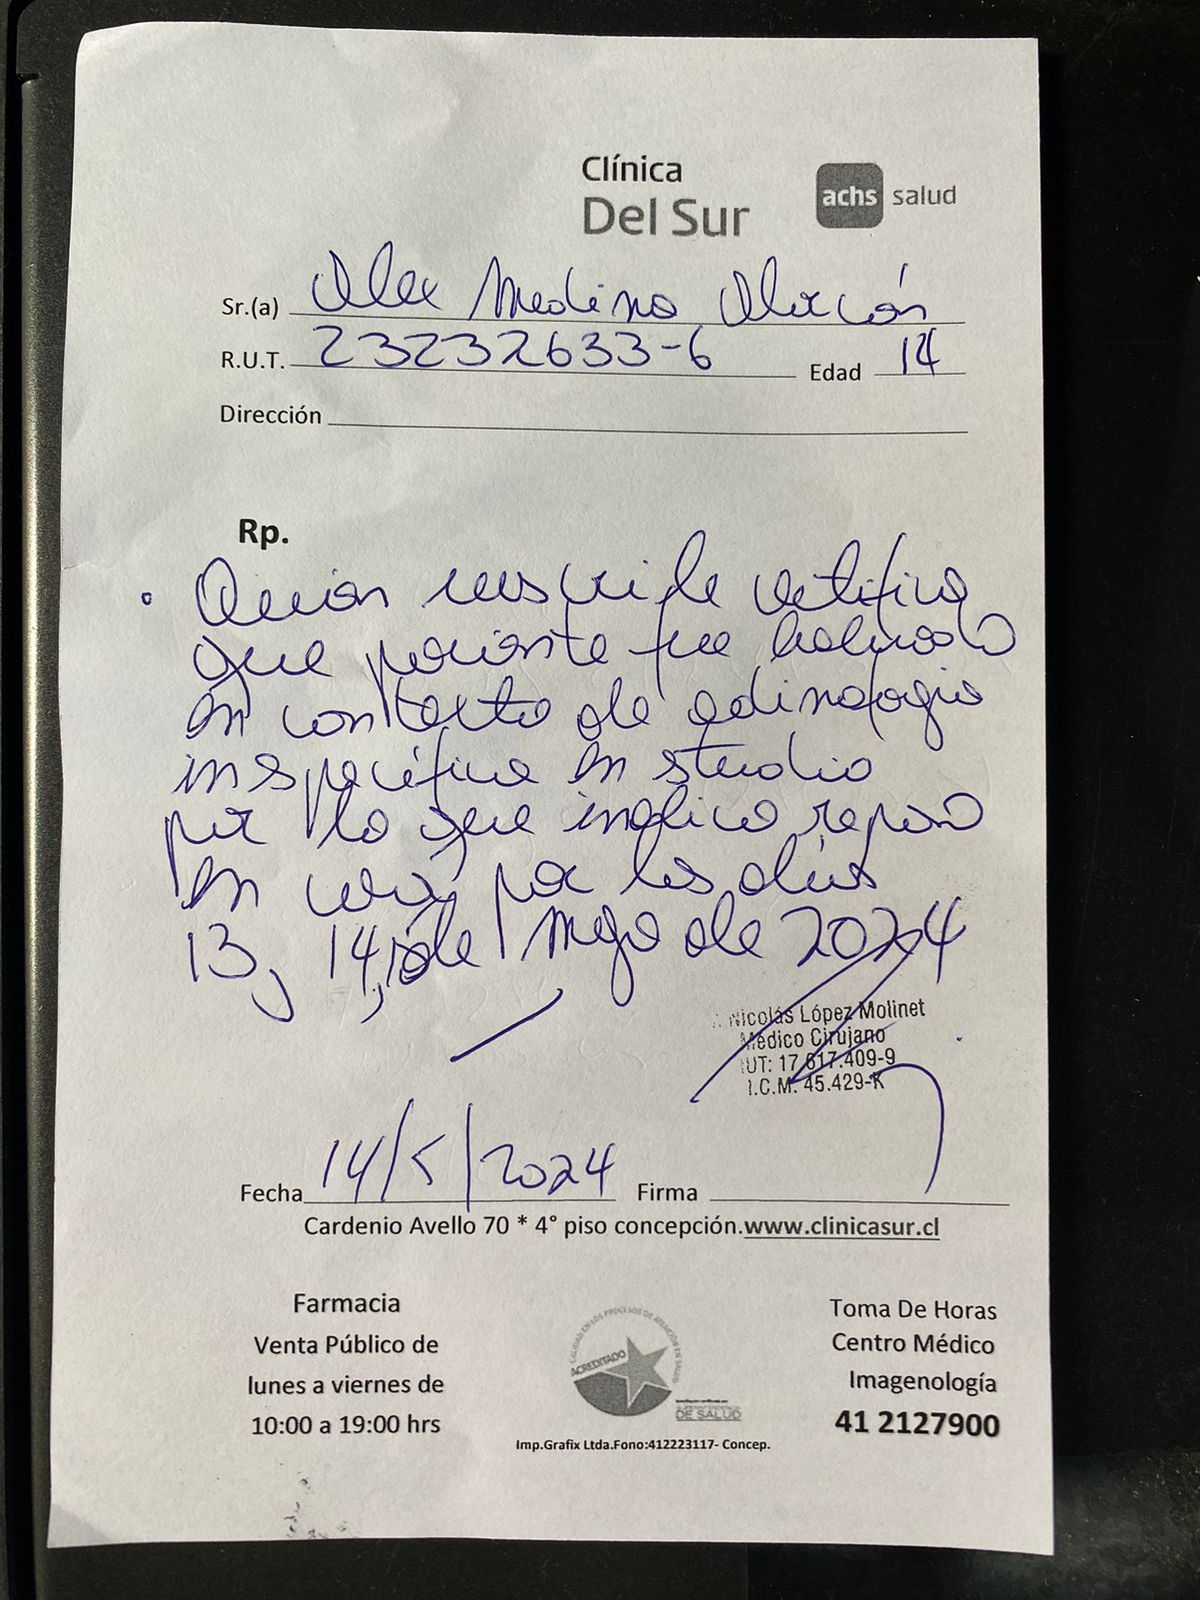 Clínica
Del Sur
achs salud
Sr.(a) Alex Medina Alarcón
R.U.T. 23232633-6 Edad 14
Dirección
Rp.
• Quien suscribe certifica
que paciente fue evaluado
en contexto de odinofagia
inespecífica en studio
por lo que indico reposo
en casa por los días
13, 14, de mayo de 2024
Nicolás López Molinet
Médico Cirujano
RUT: 17.617.409-9
I.C.M. 45.429-K
Fecha 14/5/2024 Firma
Cardenio Avello 70 * 4° piso concepción.www.clinicasur.cl
Farmacia
Venta Público de
lunes a viernes de
10:00 a 19:00 hrs
CALIDAD EN LOS PROCESOS DE ATENCIÓN EN SALUD
ACREDITADO
DE SALUD
Imp.Grafix Ltda.Fono:412223117- Concep.
Toma De Horas
Centro Médico
Imagenología
41 2127900